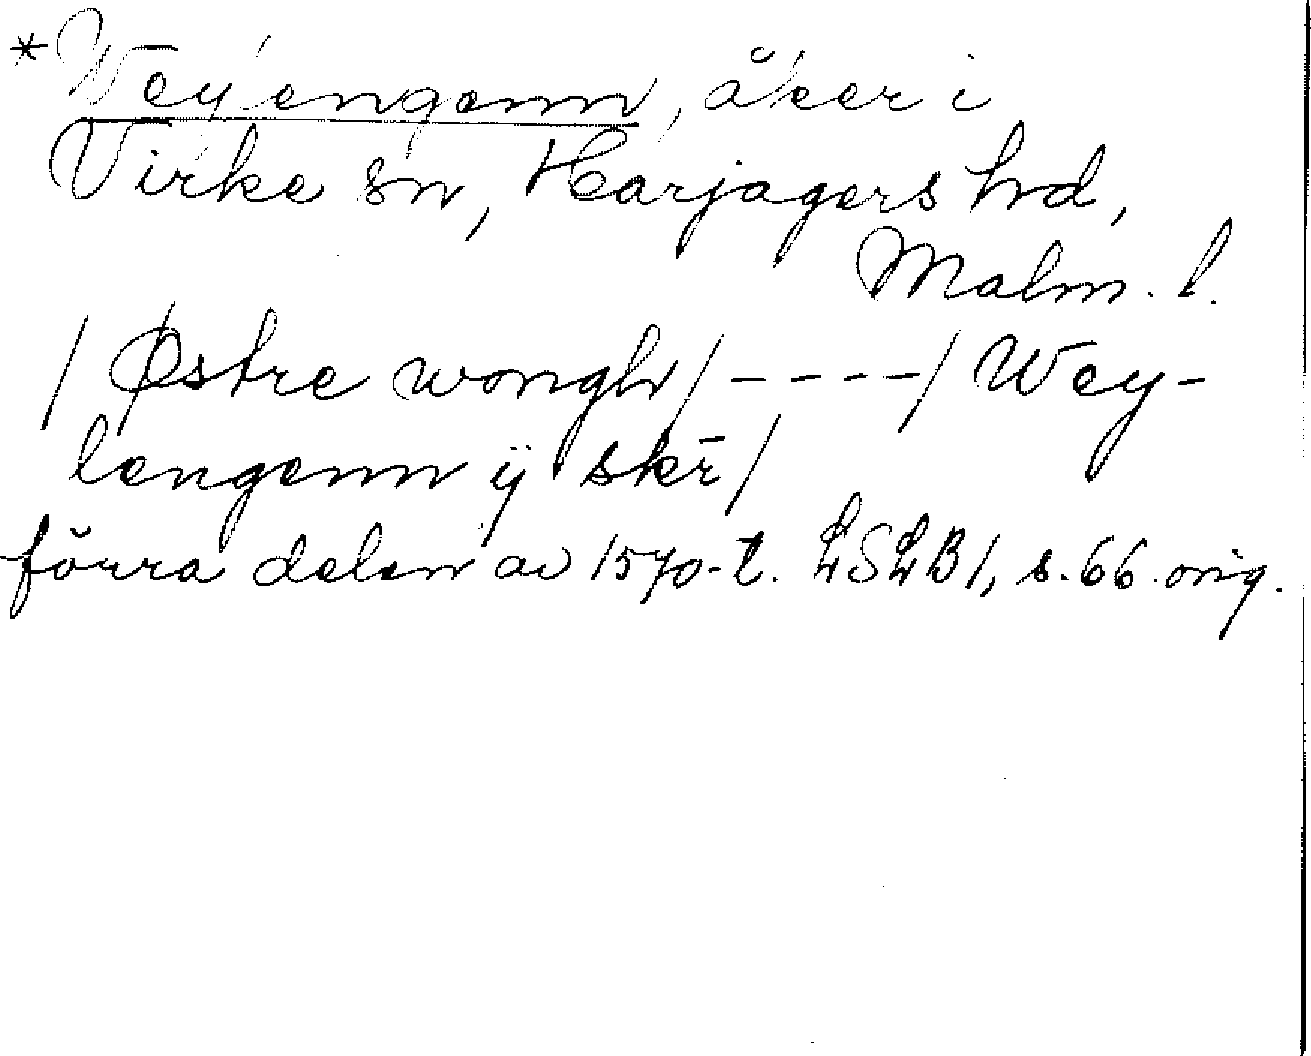 *Weylengenn, åker i
Virke sn, Harjagers hd,
Malm. l.
/ Østre wongh / - - - - / Wey-
lengenn ij skr̄ /
förra delen av 1570-t. LSLB 1, s. 66 orig.